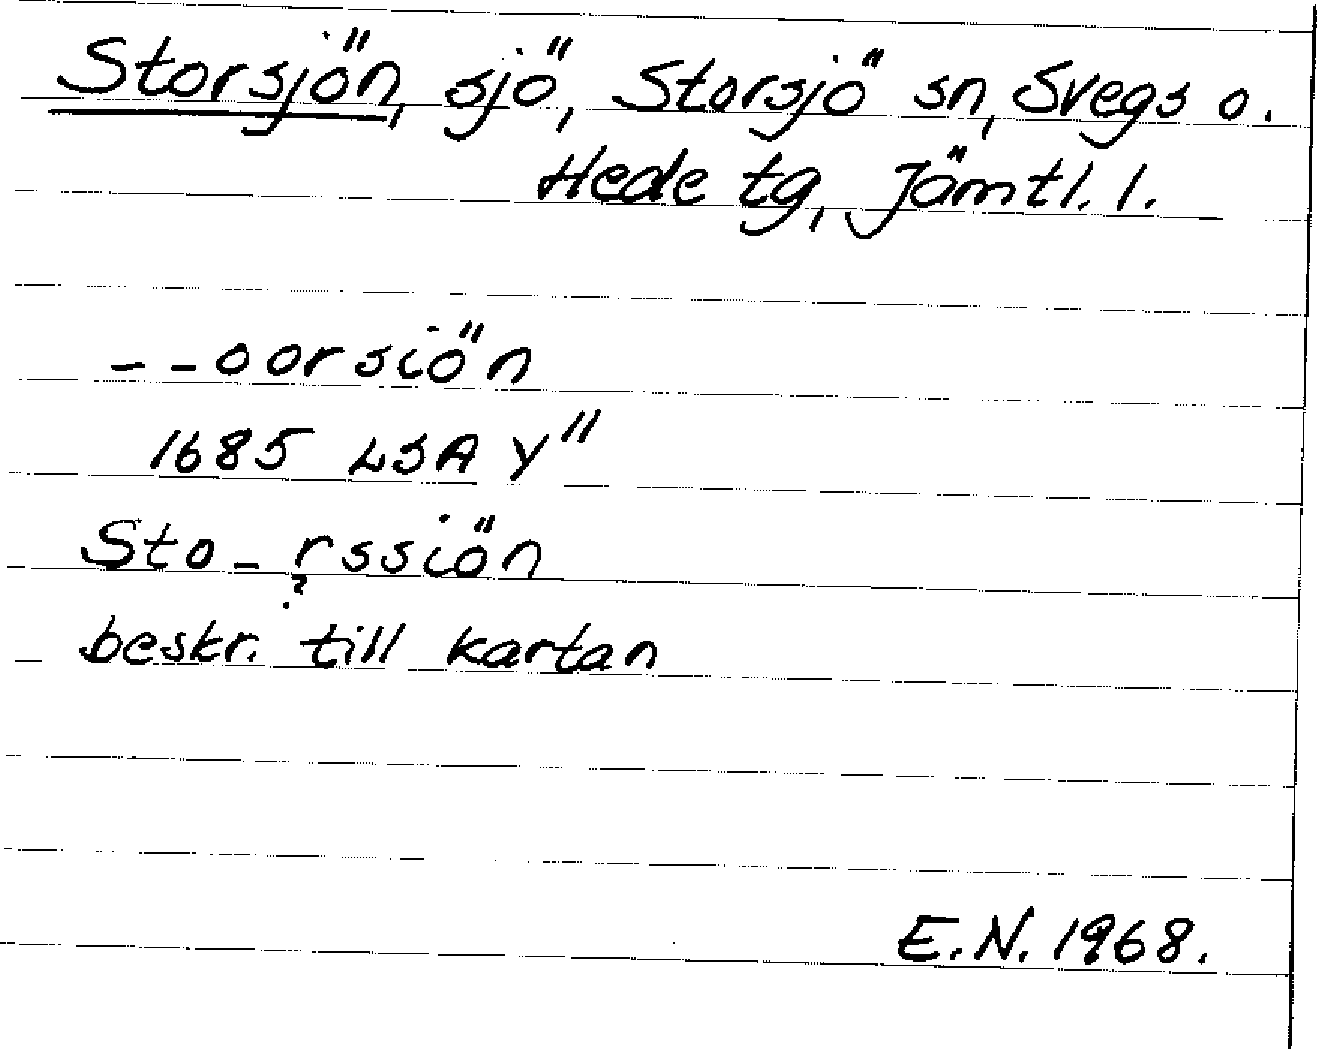 Storsjön, sjö, Storsjö sn, Svegs o.
Hede tg, Jämtl. l.
--oorsiön
1685 LSA Y"
Sto-rssiön
?
beskr. till kartan
E.N. 1968.